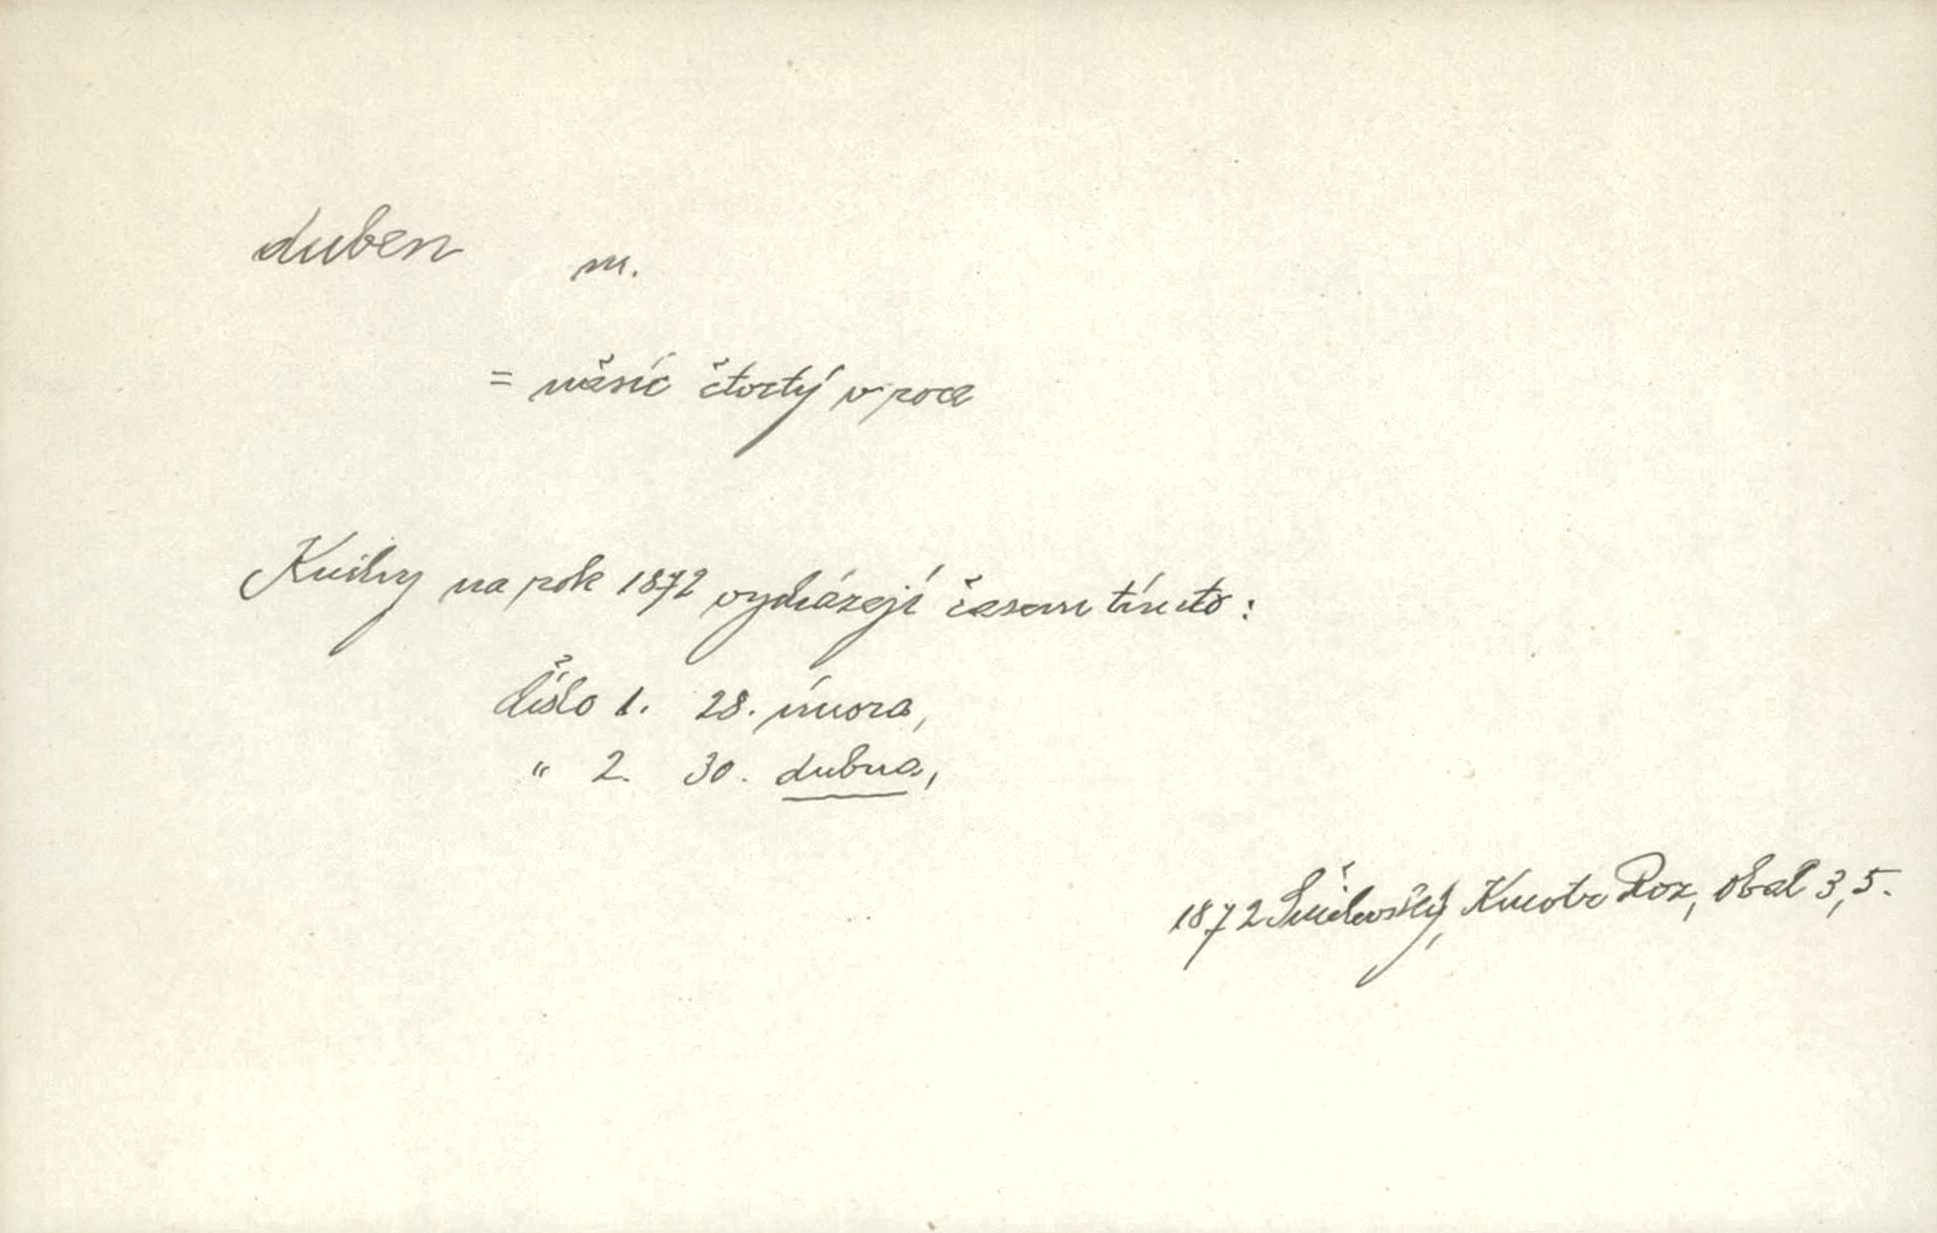 duben m.
= měsíc čtvrtý v roce
Knihy na rok 1872 vycházejí časem tímto:
Číslo 1. 28. února,
„ 2. 30. dubna,
1872 Šmilovský, Kmotr Roz, obal 3,5.